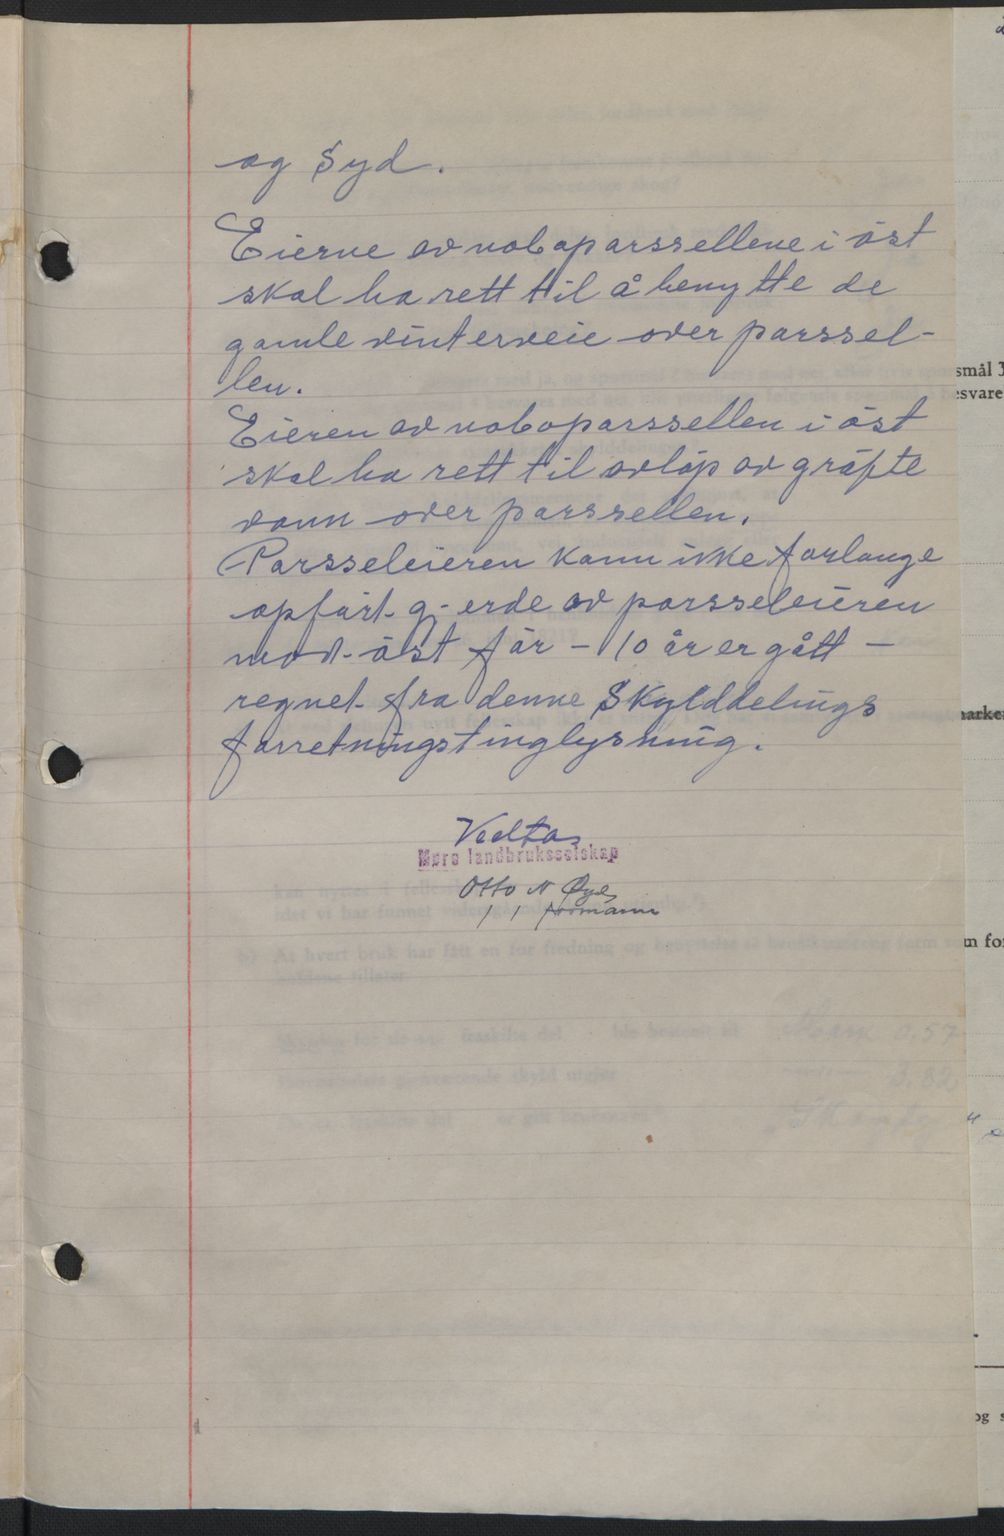 og Syd.
Eierne av naboparssellene i öst
skal ha rett til å benytte de
gamle vinterveie over parssel-
len.
Eieren av naboparssellen i öst
skal ha rett til avlöp av gröfte
vann over parssellen.
Parsseleieren kann ikke forlange
opfört gjerde av parsseleieren
mot öst för - 10 år er gått -
regnet fra denne Skylddelings
forretningstinglysning.
Vedtas
Møre landbruksselskap
Otto N Øye
formann
smål 3
esvare
arke
m for
og s